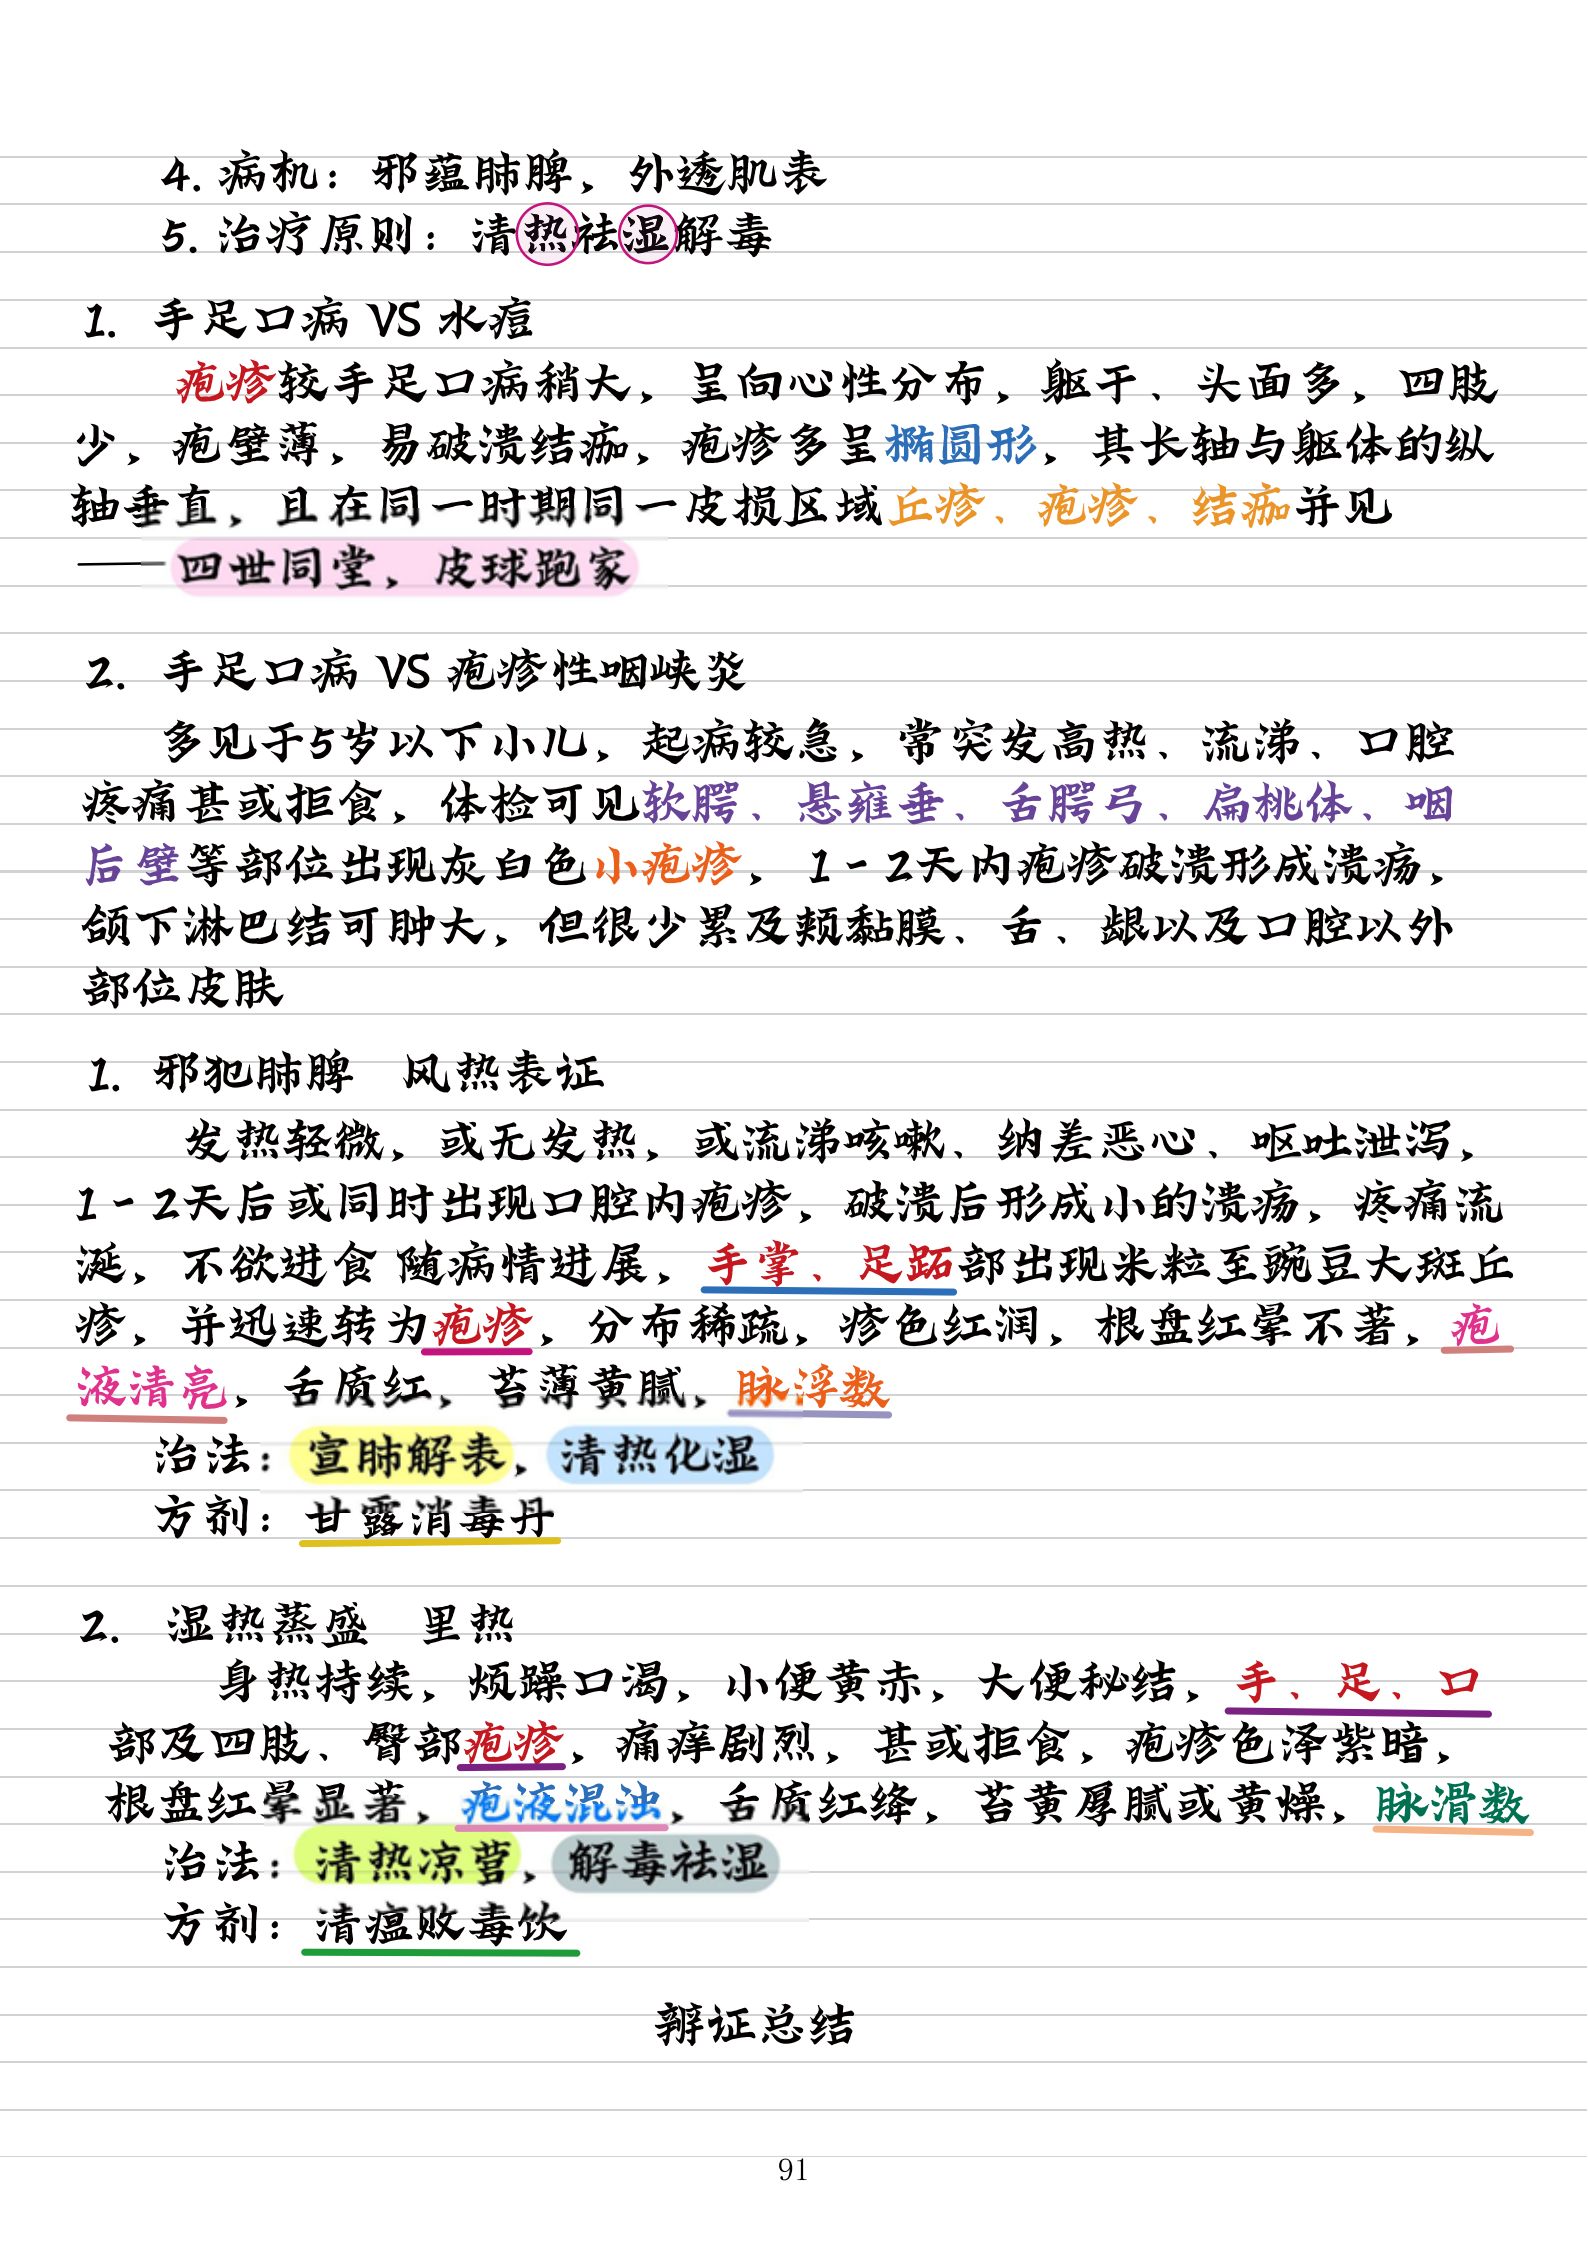 4. 病机：邪蕴肺脾，外透肌表
5. 治疗原则：清热祛湿解毒
1. 手足口病 VS 水痘
疱疹较手足口病稍大，呈向心性分布，躯干、头面多，四肢
少，疱壁薄，易破溃结痂，疱疹多呈椭圆形，其长轴与躯体的纵
轴垂直，且在同一时期同一皮损区域丘疹、疱疹、结痂并见
——四世同堂，皮球跑家
2. 手足口病 VS 疱疹性咽峡炎
多见于5岁以下小儿，起病较急，常突发高热、流涕、口腔
疼痛甚或拒食，体检可见软腭、悬雍垂、舌腭弓、扁桃体、咽
后壁等部位出现灰白色小疱疹，1-2天内疱疹破溃形成溃疡，
颌下淋巴结可肿大，但很少累及颊黏膜、舌、龈以及口腔以外
部位皮肤
1. 邪犯肺脾 风热表证
发热轻微，或无发热，或流涕咳嗽、纳差恶心、呕吐泄泻，
1-2天后或同时出现口腔内疱疹，破溃后形成小的溃疡，疼痛流
涎，不欲进食 随病情进展，手掌、足跖部出现米粒至豌豆大斑丘
疹，并迅速转为疱疹，分布稀疏，疹色红润，根盘红晕不著，疱
液清亮，舌质红，苔薄黄腻，脉浮数
治法：宣肺解表，清热化湿
方剂：甘露消毒丹
2. 湿热蒸盛 里热
身热持续，烦躁口渴，小便黄赤，大便秘结，手、足、口
部及四肢、臀部疱疹，痛痒剧烈，甚或拒食，疱疹色泽紫暗，
根盘红晕显著，疱液混浊，舌质红绛，苔黄厚腻或黄燥，脉滑数
治法：清热凉营，解毒祛湿
方剂：清瘟败毒饮
辨证总结
91